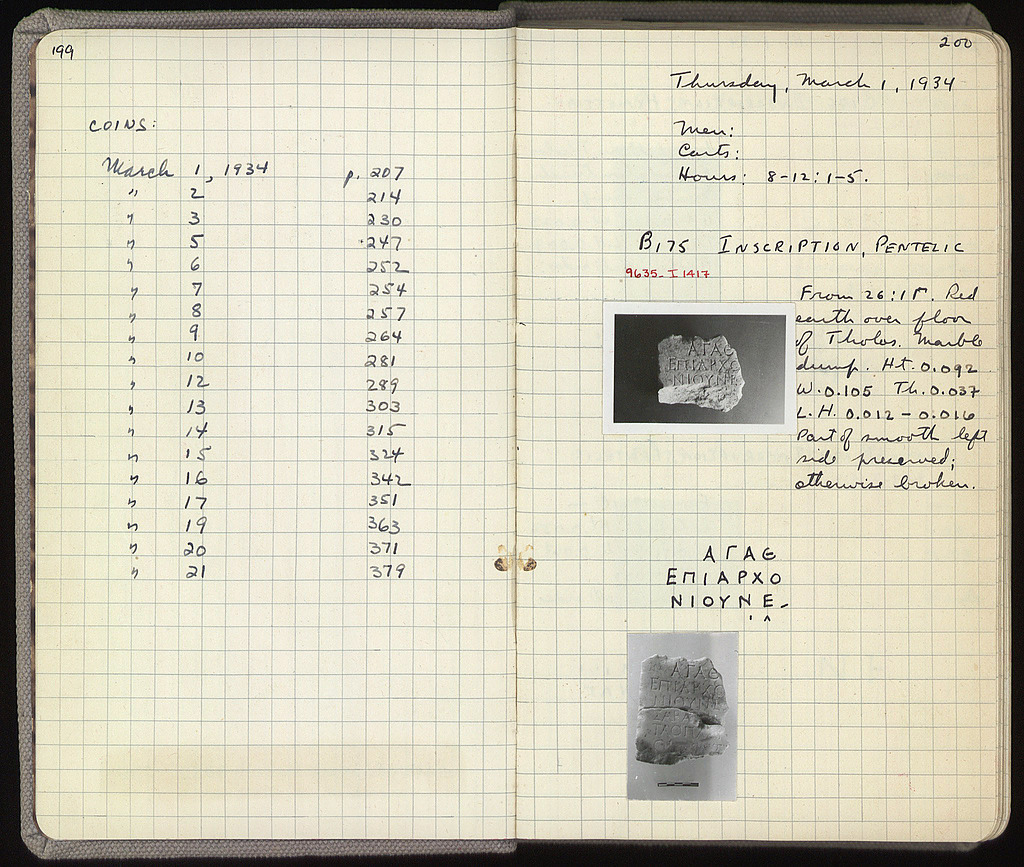 199
COINS:
March 1, 1934 p. 207
" 2 214
" 3 230
" 5 247
" 6 252
" 7 254
" 8 257
" 9 264
" 10 281
" 12 289
" 13 303
" 14 315
" 15 324
" 16 342
" 17 351
" 19 363
" 20 371
" 21 379
200
Thursday, March 1, 1934
Men:
Carts:
Hours: 8-12: 1-5.
B175 INSCRIPTION, PENTELIC
9635- I 1417
From 26:ΙΓ. Red
earth over floor
of Tholos. Marble
dump. Ht. 0.092
W. 0.105 Th. 0.037
L.H. 0.012 - 0.016
Part of smooth left
side preserved;
otherwise broken.
ΑΓΑΘ
ΕΠΙΑΡΧΟ
ΝΙΟΥΝΕ
ΑΓΑΘ
ΕΠΙΑΡΧΟ
ΝΙΟΥΝΕ-
ΑΓΑΘ
ΕΠΙΑΡΧ
ΝΙΟΥΝΕ